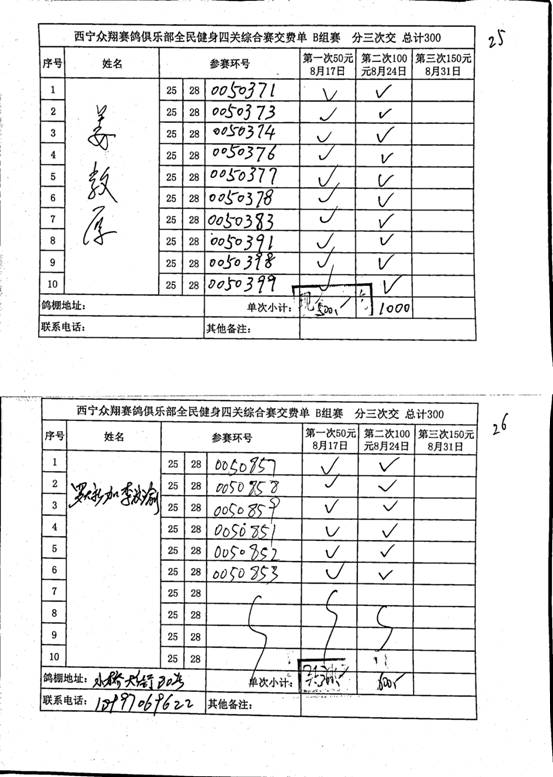 西宁众翔赛鸽俱乐部全民健身四关综合赛交费单 B组赛 分三次交 总计300
25
序号 姓名 参赛环号 第一次50元 8月17日 第二次100元8月24日 第三次150元 8月31日
姜教厚
1 25 28 0050371 ✓ ✓
2 25 28 0050373 ✓ ✓
3 25 28 0050374 ✓ ✓
4 25 28 0050376 ✓ ✓
5 25 28 0050377 ✓ ✓
6 25 28 0050378 ✓ ✓
7 25 28 0050383 ✓ ✓
8 25 28 0050391 ✓ ✓
9 25 28 0050398 ✓ ✓
10 25 28 0050399 ✓ ✓
鸽棚地址: 单次小计: 500 1000
联系电话: 其他备注:
西宁众翔赛鸽俱乐部全民健身四关综合赛交费单 B组赛 分三次交 总计300
26
序号 姓名 参赛环号 第一次50元 8月17日 第二次100元8月24日 第三次150元 8月31日
1 25 28 0050857 ✓ ✓
2 25 28 0050858 ✓ ✓
3 25 28 0050859 ✓ ✓
4 25 28 0050851 ✓ ✓
5 25 28 0050852 ✓ ✓
6 25 28 0050853 ✓ ✓
7 25 28
8 25 28
9 25 28
10 25 28
鸽棚地址: 单次小计: 600
联系电话: 10997069622 其他备注: